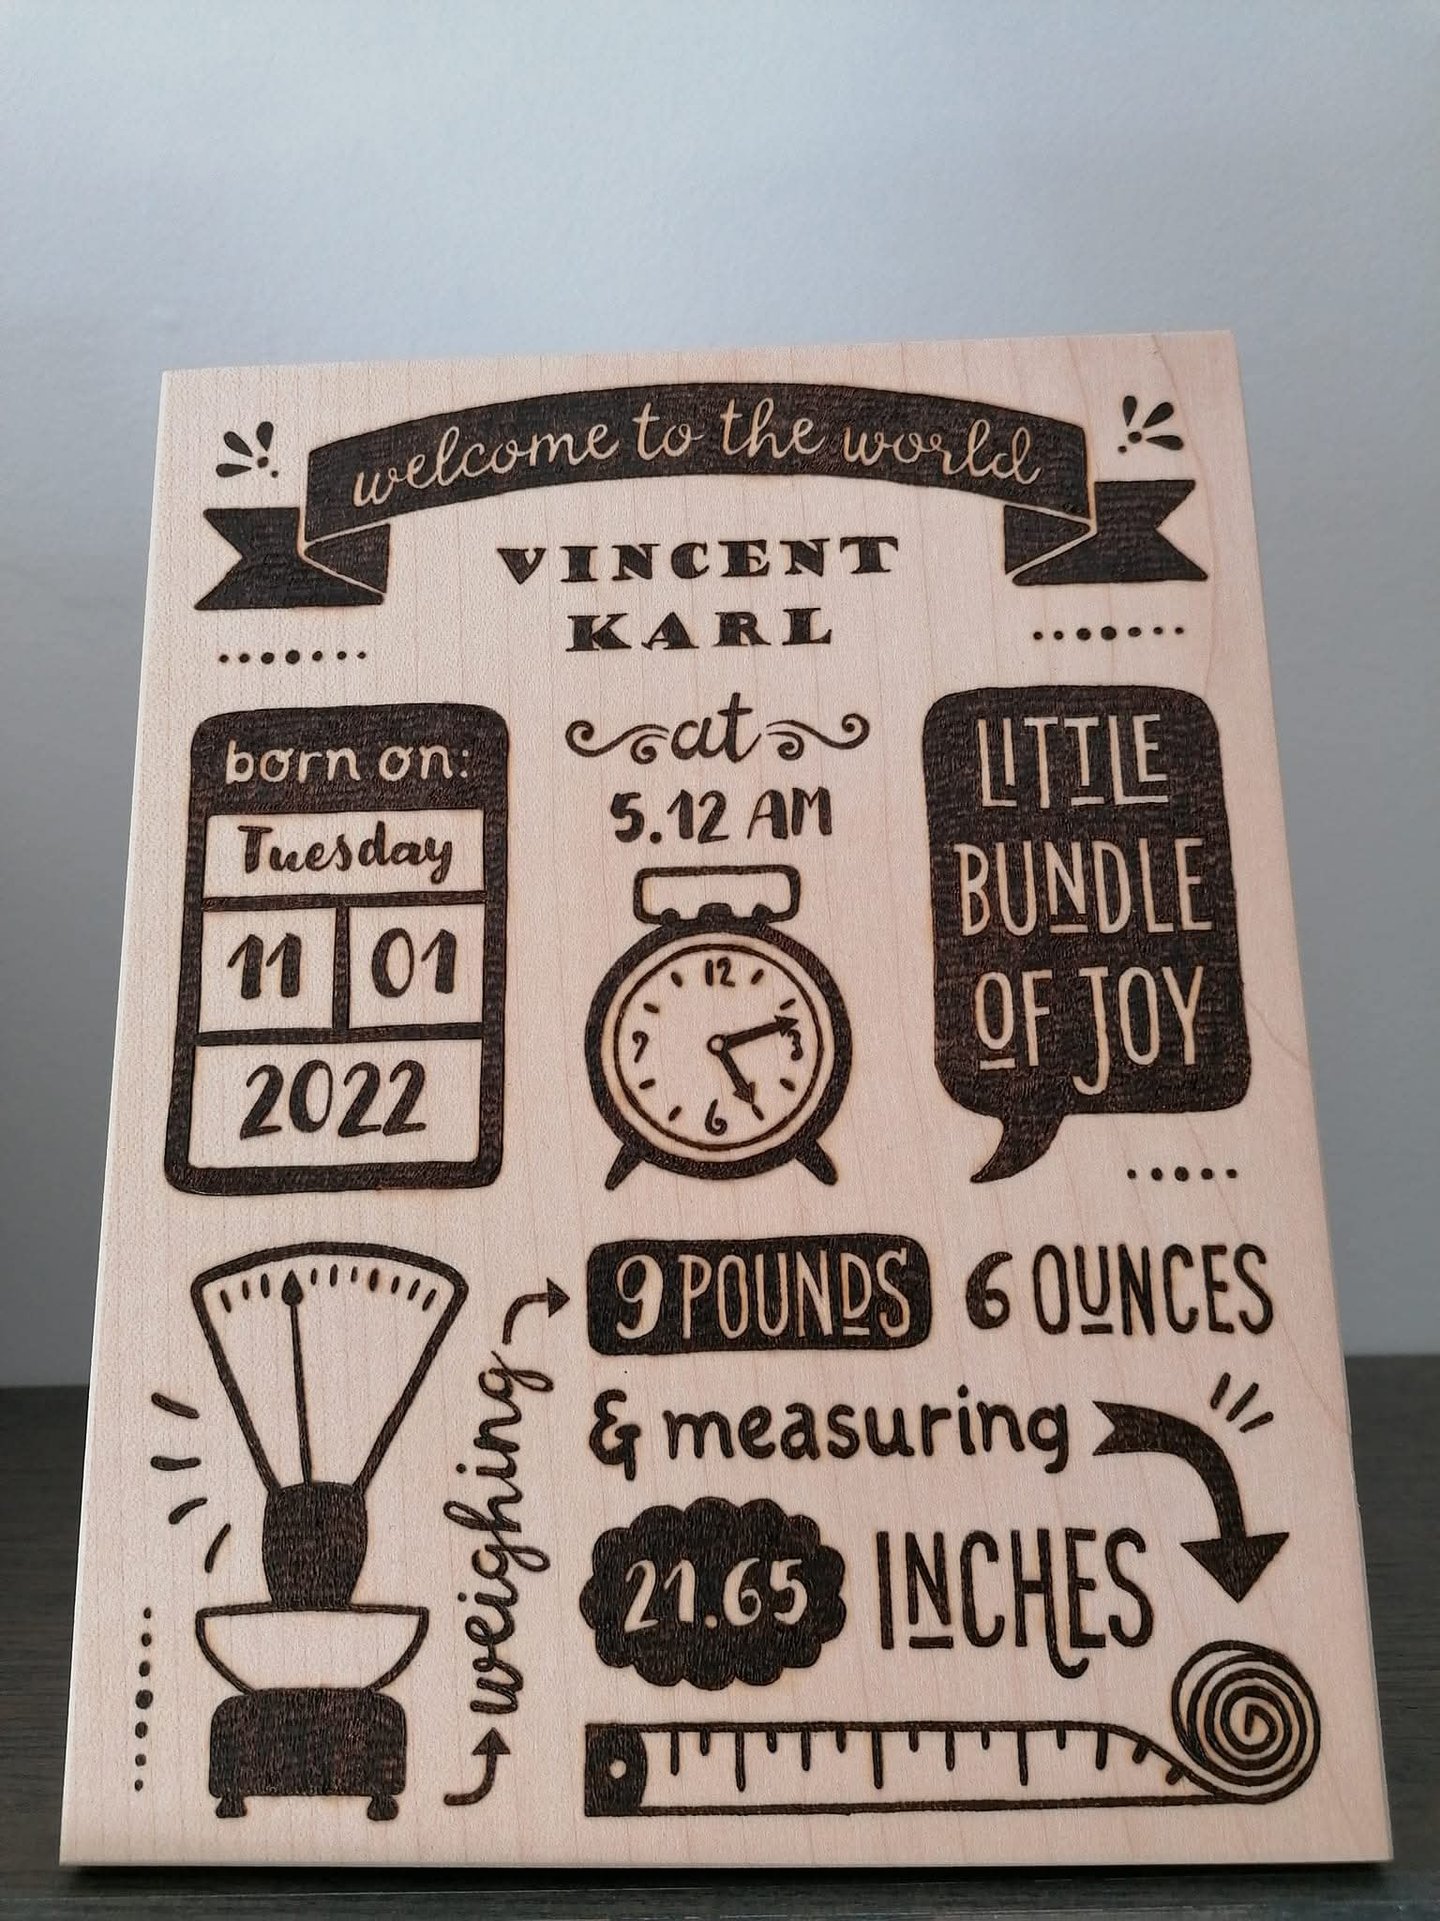 welcome to the world
VINCENT
KARL
born on:
Tuesday
11 01
2022
at
5.12 AM
12
3
6
9
LITTLE
BUNDLE
OF JOY
weighing
9 POUNDS 6 OUNCES
& measuring
21.65 INCHES